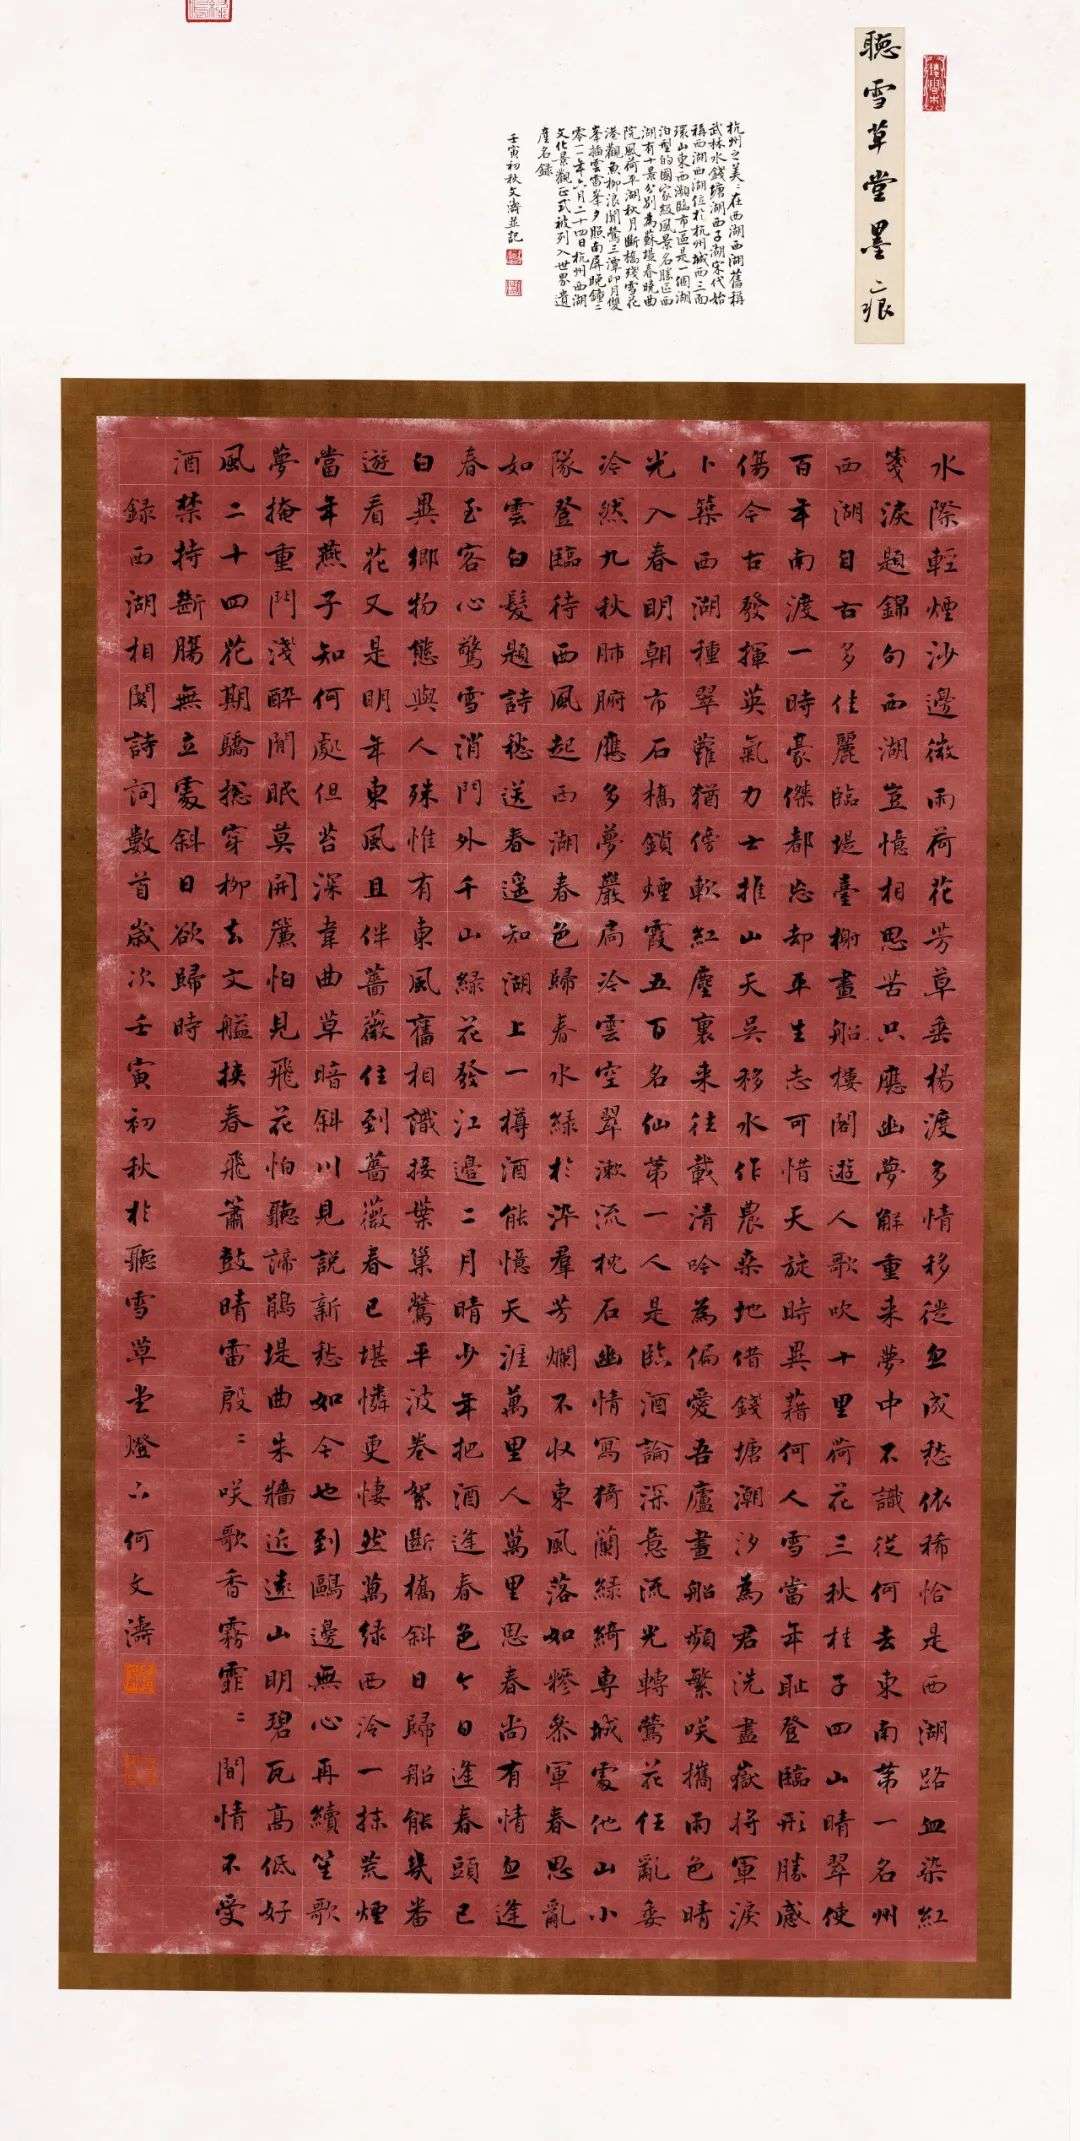 聽雪草堂墨痕
杭州之美〻在西湖西湖舊稱
武林水錢塘湖西子湖宋代始
稱西湖西湖位於杭州城西三面
環山東西瀕臨市區是一個湖
泊型的國家級風景名勝區西
湖有十景分別為蘇堤春曉曲
院風荷平湖秋月斷橋殘雪花
港觀魚柳浪聞鶯三潭印月雙
峯插雲雷峯夕照南屏晚鐘二
零一一年六月二十四日杭州西湖
文化景觀正式被列入世界遺
產名錄
壬寅初秋文濤並記
水際輕煙沙邊微雨荷花芳草垂楊渡多情移徙忽成愁依稀恰是西湖路血染紅
箋淚題錦句西湖豈憶相思苦只應幽夢解重来夢中不識從何去東南第一名州
西湖自古多佳麗臨堤臺榭畫船樓閣遊人歌吹十里荷花三秋桂子四山晴翠使
百年南渡一時豪傑都忘却平生志可惜天旋時異藉何人雪當年恥登臨形勝感
傷今古發揮英氣力士推山天吳移水作農桑地借錢塘潮汐為君洗盡嶽將軍淚
卜築西湖種翠蘿猶傍軟紅塵裏来往載清吟為偏愛吾廬畫船頻繁咲攜雨色晴
光入春明朝市石橋鎖煙霞五百名仙第一人是臨酒論深意流光轉鶯花任亂委
泠然九秋肺腑應多夢巖扃冷雲空翠漱流枕石幽情寫猗蘭綠綺專城處他山小
隊登臨待西風起西湖春色歸春水綠於染羣芳爛不收東風落如糝參軍春思亂
如雲白髮題詩愁送春遥知湖上一樽酒能憶天涯萬里人萬里思春尚有情忽逢
春至客心驚雪消門外千山綠花發江邊二月晴少年把酒逢春色今日逢春頭已
白異鄉物態與人殊惟有東風舊相識接葉巢鶯平波卷絮斷橋斜日歸船能幾番
遊看花又是明年東風且伴薔薇住到薔薇春已堪憐更悽然萬綠西泠一抹荒煙
當年燕子知何處但苔深韋曲草暗斜川見說新愁如今也到鷗邊無心再續笙歌
夢掩重門淺醉閒眠莫開簾怕見飛花怕聽啼鵑堤曲朱牆近遠山明碧瓦高低好
風二十四花期驕驄穿柳去文艗挾春飛簫鼓晴雷殷〻咲歌香霧霏〻閒情不受
酒禁持斷腸無立處斜日欲歸時
錄西湖相関詩詞數首歲次壬寅初秋於聽雪草堂燈下何文濤